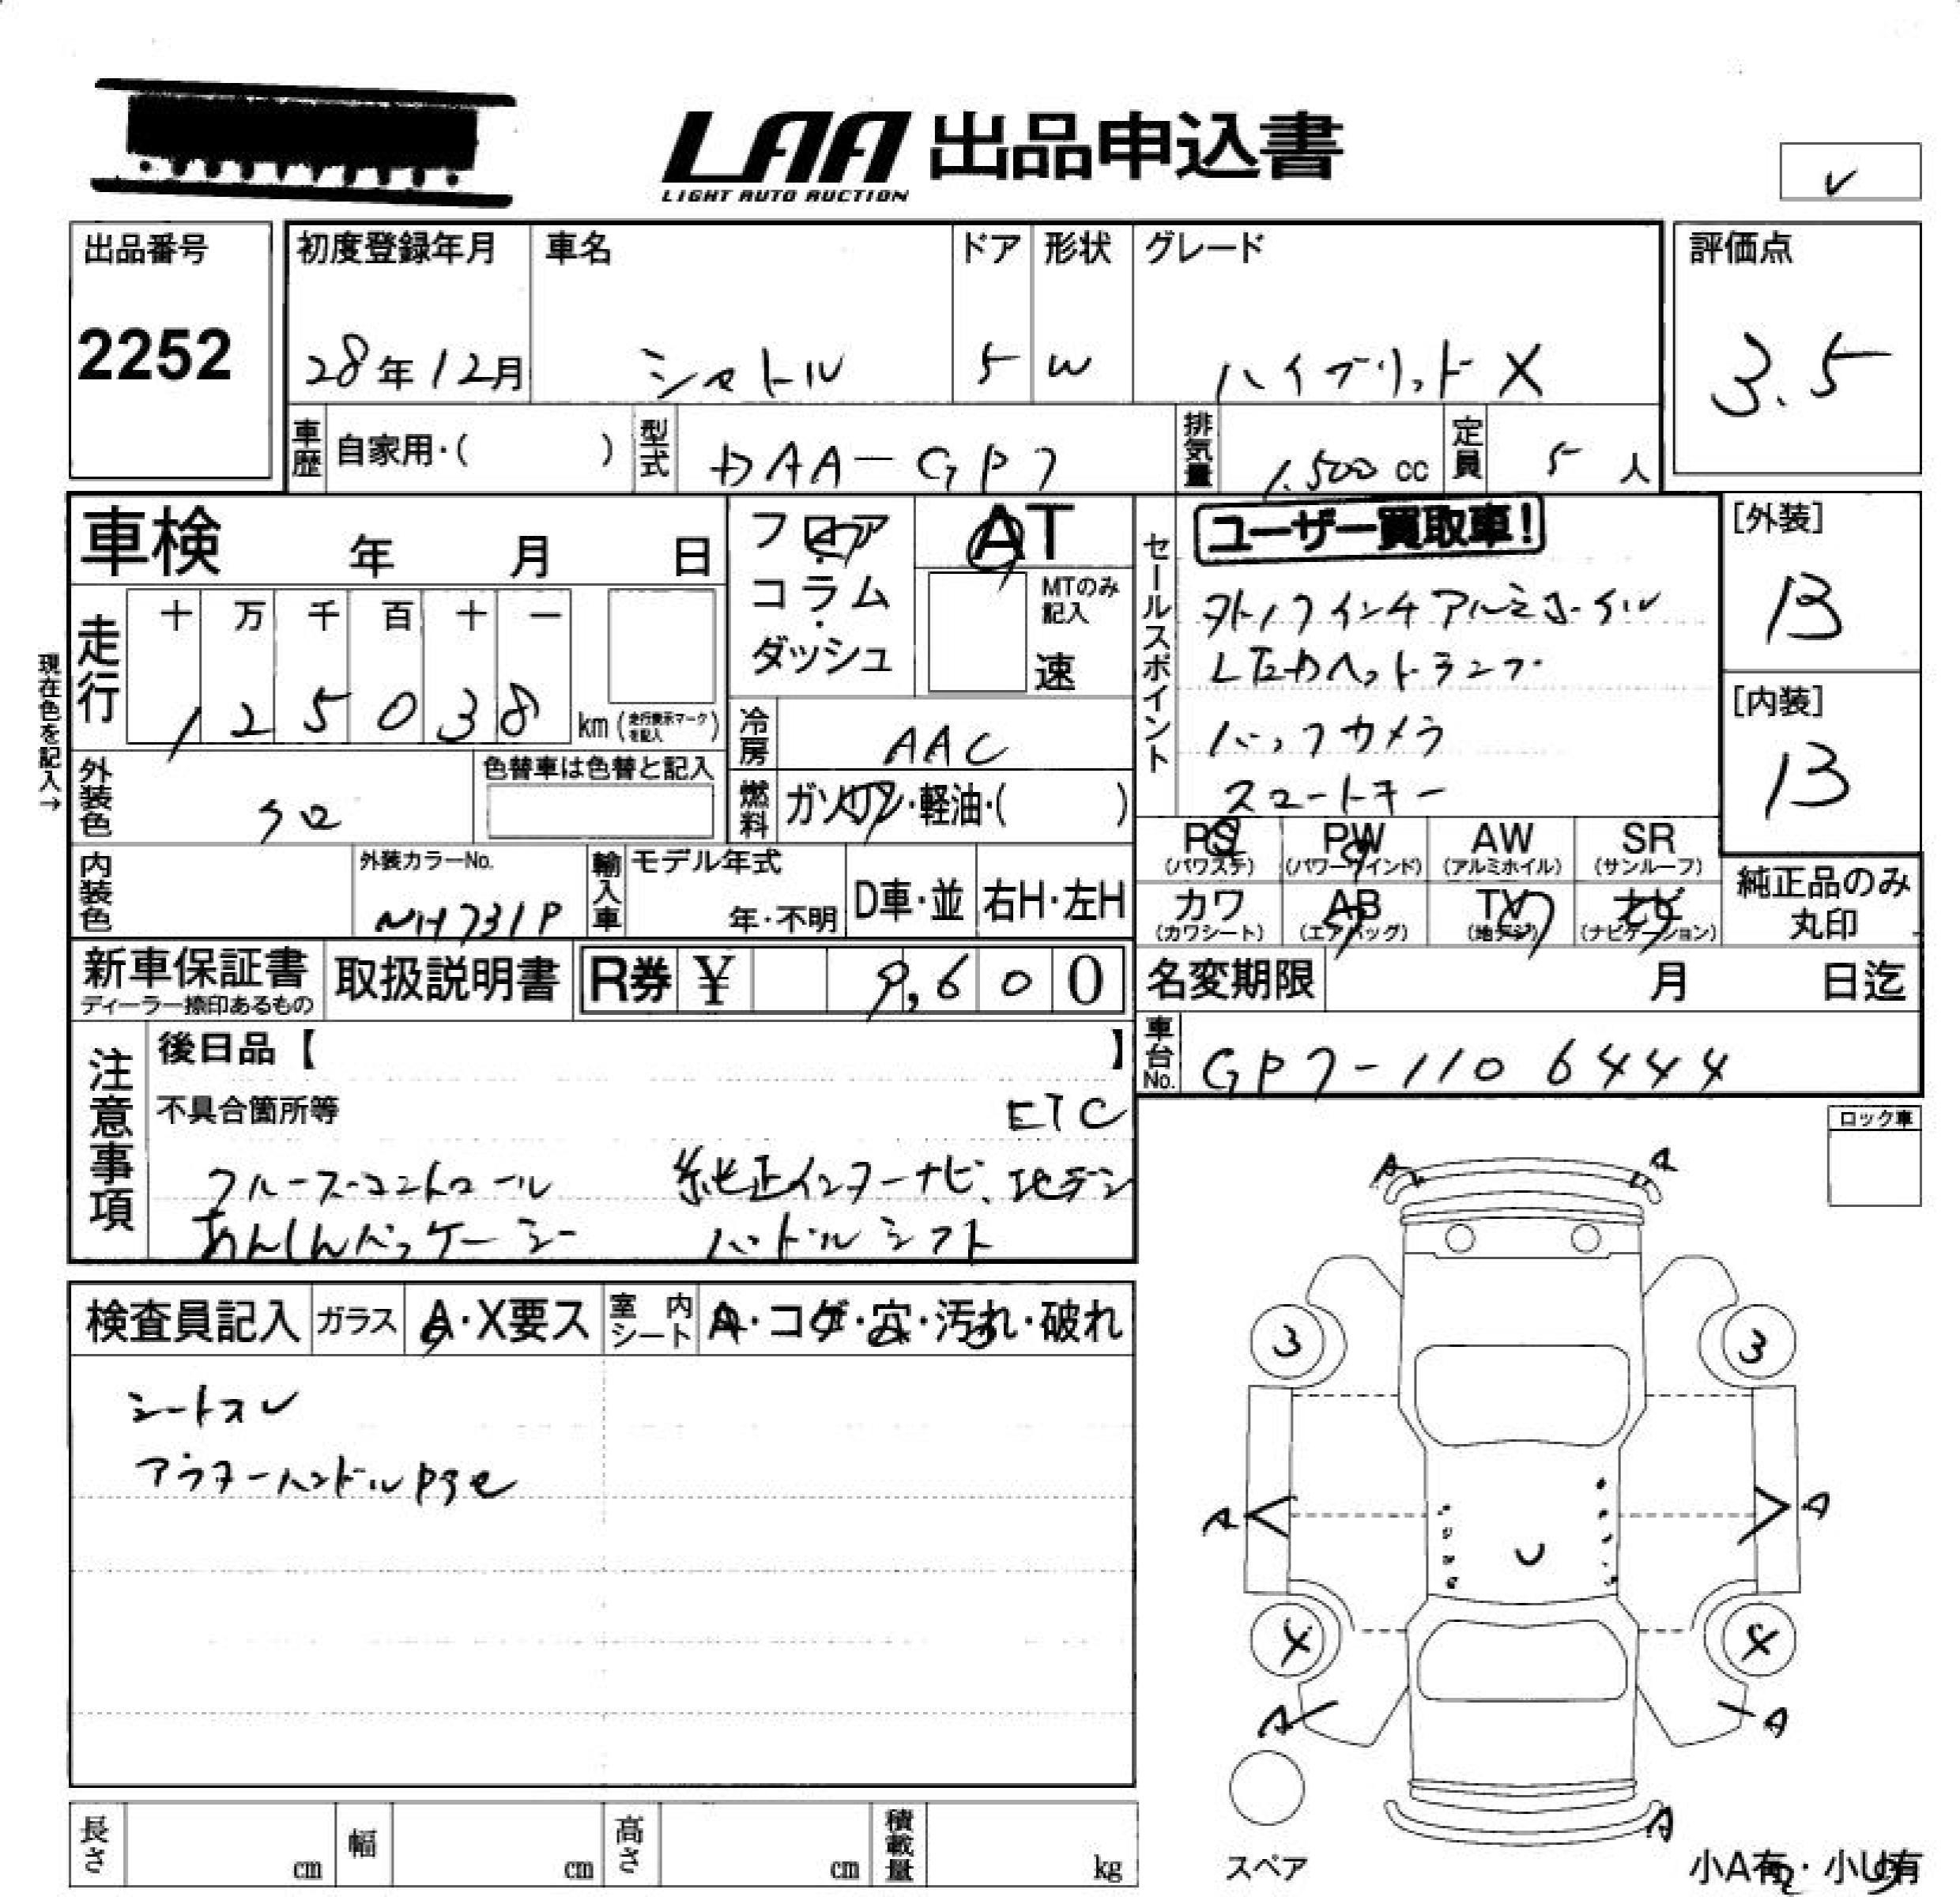 LAA 出品申込書
LIGHT AUTO AUCTION
レ
出品番号
2252
初度登録年月
28年12月
車名
シャトル
ドア
5
形状
W
グレード
ハイブリットX
評価点
3.5
車歴 自家用・( )
型式 DAA-GP7
排気量 1,500 cc
定員 5 人
車検 年 月 日
フロア
コラム
ダッシュ
AT
MTのみ記入
速
現在色を記入→
走行 十 万 千 百 十 一
1 2 5 0 3 8 km (走行表示マークを記入)
冷房 AAC
燃料 ガソリン・軽油・( )
外装色 クロ
色替車は色替と記入
内装色
外装カラーNo.
NH731P
輸入車 モデル年式
年・不明
D車・並 右H・左H
セールスポイント
ユーザー買取車!
インチアルミホイル
LEDヘットランプ
バックカメラ
スマートキー
[外装]
B
[内装]
B
PS
(パワステ)
PW
(パワーウインド)
AW
(アルミホイル)
SR
(サンルーフ)
カワ
(カワシート)
AB
(エアバッグ)
TV
(地デジ)
ナビ
(ナビゲーション)
純正品のみ
丸印
新車保証書
ディーラー捺印あるもの
取扱説明書
R券 ¥ 9,600
名変期限 月 日迄
車台No. GP7-1106444
注意事項
後日品【 】
不具合箇所等
ETC
クルーズコントロール 純正インターナビ、地デジ
あんしんパッケージ ハンドルシフト
ロック車
検査員記入 ガラス A・X要ス 室内シート A・コゲ・穴・汚れ・破れ
シートスレ
アウターハンドル
A A
3 3
A A
4 4
A A
A
スペア
小A有・小U有
長さ cm
幅 cm
高さ cm
積載量 kg